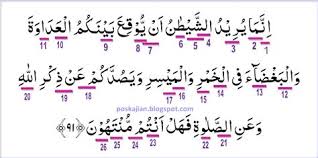 اِنَّمَا يُرِيْدُ الشَّيْطٰنُ اَنْ يُّوْقِعَ بَيْنَكُمُ الْعَدَاوَةَ
11 10 9 8 7 6 5 4 3 2 1
وَالْبَغْضَاۤءَ فِى الْخَمْرِ وَالْمَيْسِرِ وَيَصُدَّكُمْ عَنْ ذِكْرِ اللّٰهِ
20 19 18 17 16 15 14 13 12
poskajian.blogspot.com
وَعَنِ الصَّلٰوةِ فَهَلْ اَنْتُمْ مُّنْتَهُوْنَ ﴿٩١﴾
26 24 23 22 21